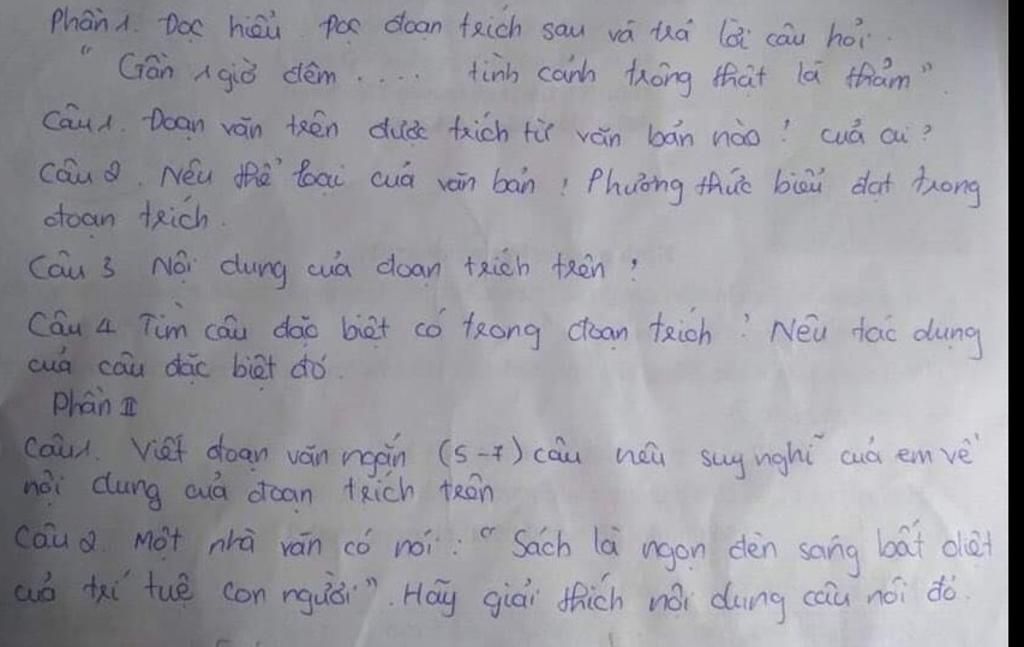 Phần 1. Đọc hiểu. Đọc đoạn trích sau và trả lời câu hỏi.
"Gần 1 giờ đêm .... tình cảnh trông thật là thảm".
Câu 1. Đoạn văn trên được trích từ văn bản nào? của ai?
Câu 2. Nêu thể loại của văn bản? Phương thức biểu đạt trong
đoạn trích.
Câu 3 Nội dung của đoạn trích trên?
Câu 4 Tìm câu đặc biệt có trong đoạn trích? Nêu tác dụng
của câu đặc biệt đó.
Phần II
Câu 1. Viết đoạn văn ngắn (5-7) câu nêu suy nghĩ của em về
nội dung của đoạn trích trên
Câu 2. Một nhà văn có nói: "Sách là ngọn đèn sáng bất diệt
của trí tuệ con người". Hãy giải thích nội dung câu nói đó.